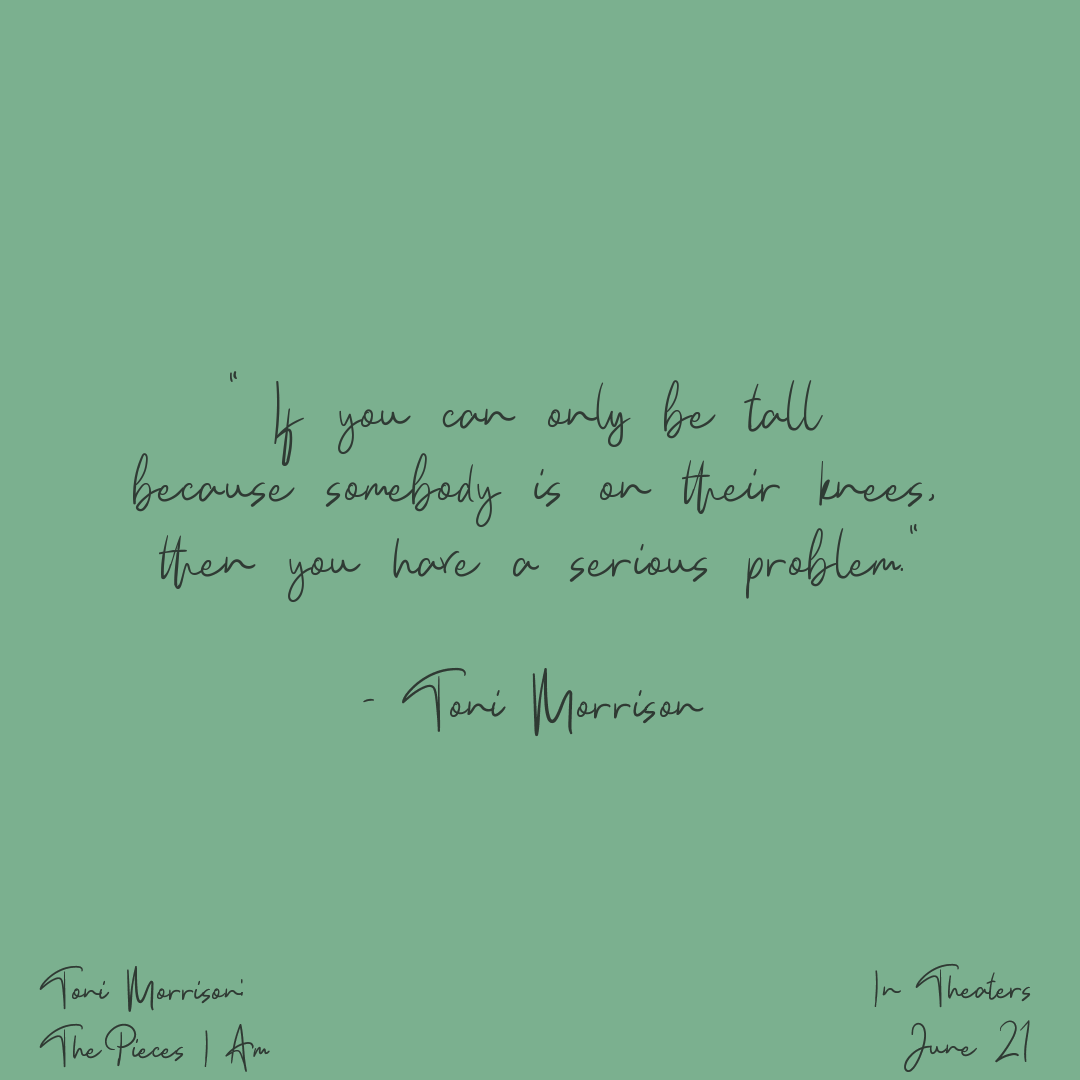 " If you can only be tall
because somebody is on their knees,
then you have a serious problem."
- Toni Morrison
Toni Morrison:
The Pieces I Am
In Theaters
June 21